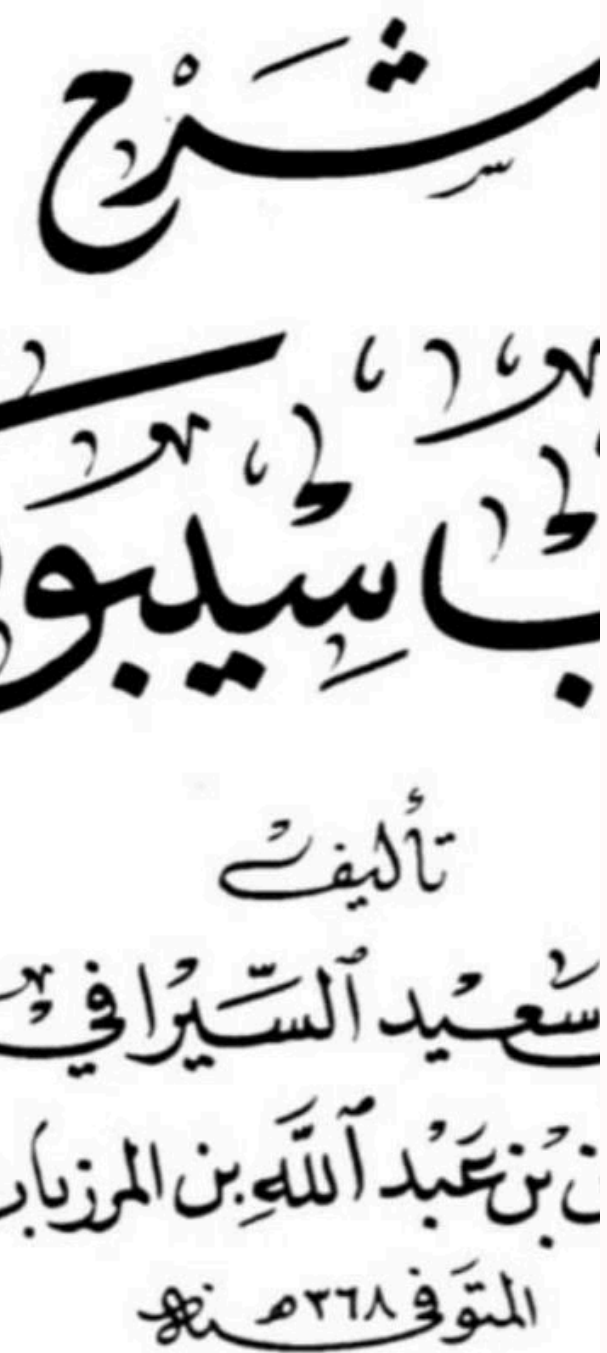 شَرْح
سِيبو
تأليف
سَعيد ٱلسِّيرافي
بْن عَبْد ٱللَّهِ بن المرزبان
المتوَفى ٣٦٨هـ سنة